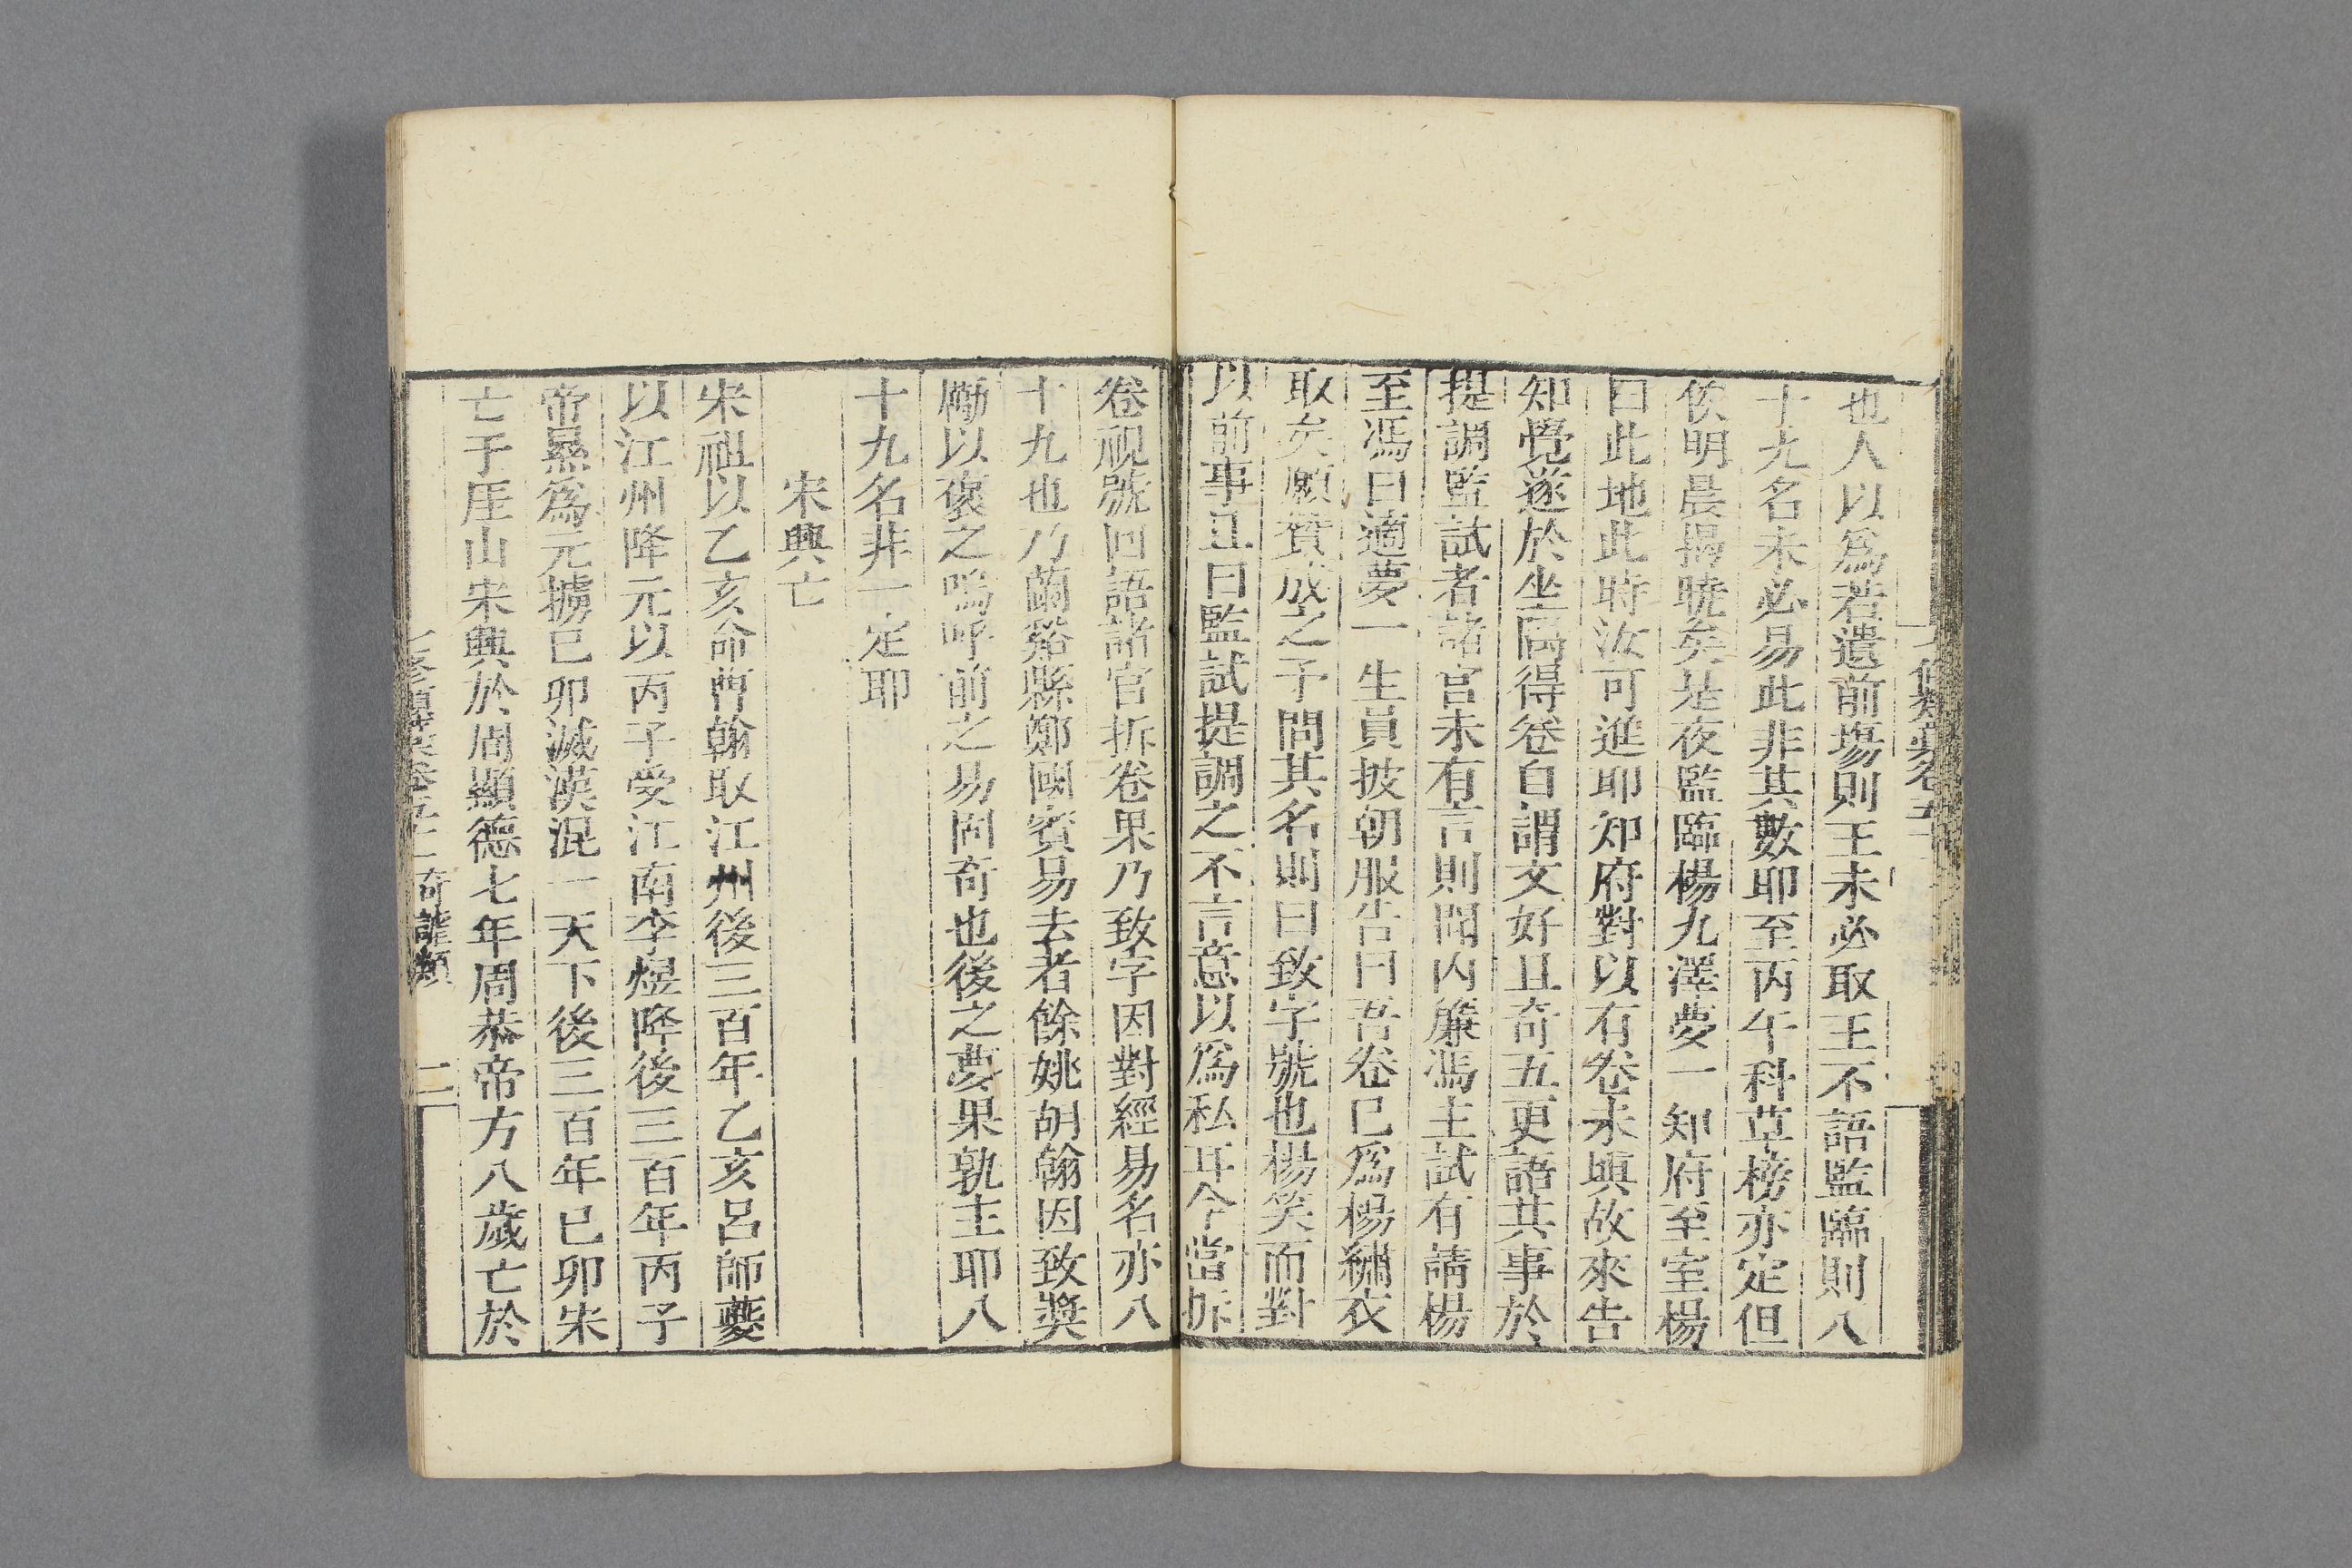 也人以爲若遺前塲則王未必取王不語監臨則八
十九名未必易此非其數耶至丙午科草榜亦定但
俟明晨揭曉矣是夜監臨楊九澤夢一知府至室楊
曰此地此時汝可進耶知府對以有卷未塡故來告
知覺遂於坐隅得卷自謂文好且奇五更語其事於
提調監試者諸官未有言則聞内簾馮主試有請楊
至馮曰適夢一生員披朝服告曰吾卷已爲楊繡衣
取矣願贊成之予問其名則曰致字號也楊笑而對
以前事且曰監試提調之不言意以爲私耳今當拆
卷視號回語諸官拆卷果乃致字因對經易名亦八
十九也乃蘭谿縣鄭國賓易去者餘姚胡翰因致奬
勵以襃之嗚呼前之易固奇也後之夢果孰主耶八
十九名非一定耶
宋興亡
宋祖以乙亥命曹翰取江州後三百年乙亥呂師夔
以江州降元以丙子受江南李煜降後三百年丙子
帝㬎爲元擄己卯滅漢混一天下後三百年己卯宋
亡于厓山宋興於周顯德七年周恭帝方八歲亡於
七修類藁卷五十一 奇謔類 二